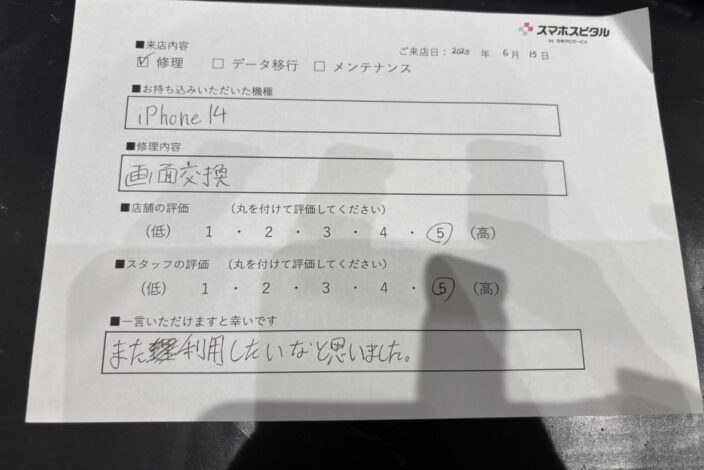 スマホスピタル
by 日本PCサービス
■来店内容
ご来店日: 2025 年 6月 15日
☑ 修理 □ データ移行 □ メンテナンス
■お持ち込みいただいた機種
iPhone 14
■修理内容
画面交換
■店舗の評価 (丸を付けて評価してください)
(低) 1 ・ 2 ・ 3 ・ 4 ・ 5 (高)
■スタッフの評価 (丸を付けて評価してください)
(低) 1 ・ 2 ・ 3 ・ 4 ・ 5 (高)
■一言いただけますと幸いです
また利用したいなと思いました。